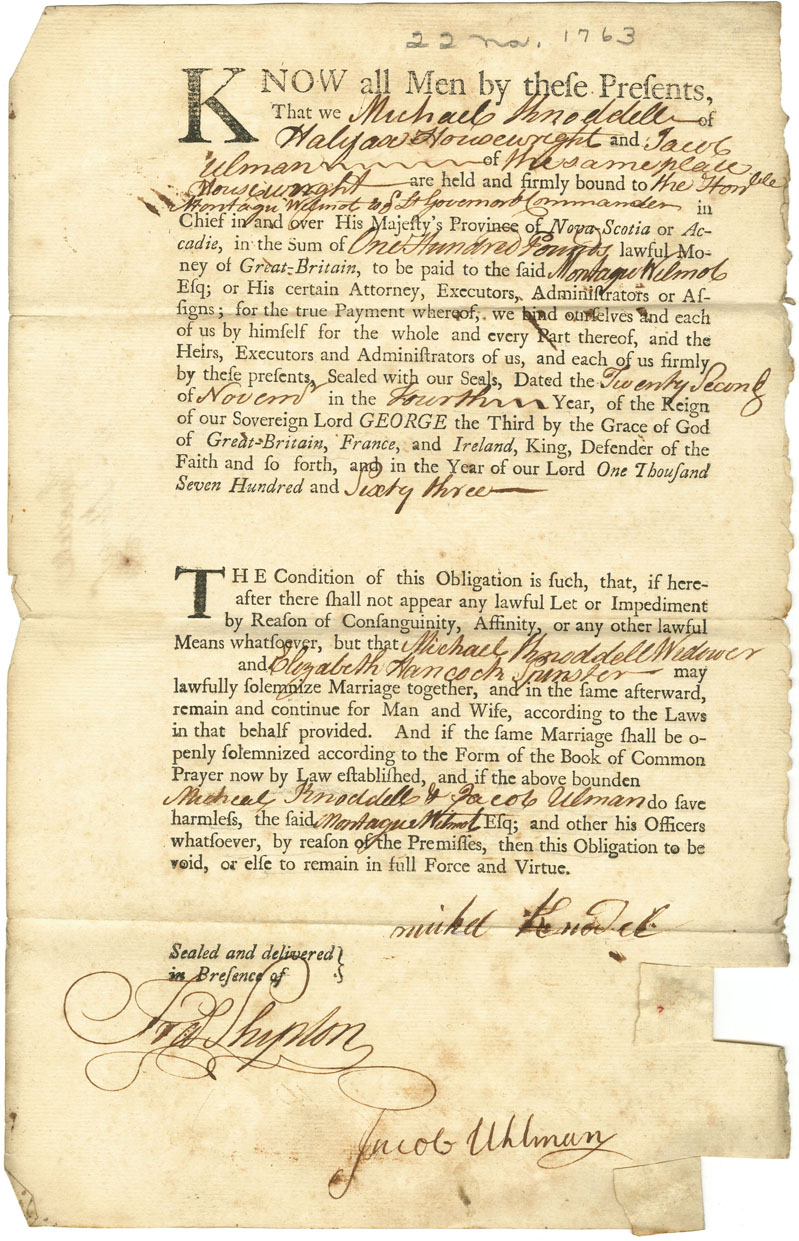 22 No. 1763
KNOW all Men by theſe Preſents,
That we Michael Knoddell of
Halifax Housewright and Jacob
Ulman of the same place
Housewright are held and firmly bound to the Honble
Montagu Wilmot Esq Lt Governor & Commander in
Chief in and over His Majeſty's Province of Nova-Scotia or Ac-
cadie, in the Sum of One Hundred Pounds lawful Mo-
ney of Great-Britain, to be paid to the said Montagu Wilmot
Eſq; or His certain Attorney, Executors, Adminiſtrators or Aſ-
ſigns; for the true Payment whereof, we bind ourſelves and each
of us by himſelf for the whole and every Part thereof, and the
Heirs, Executors and Adminiſtrators of us, and each of us firmly
by theſe preſents, Sealed with our Seals, Dated the Twenty Second
of Novemr in the Fourth Year, of the Reign
of our Sovereign Lord GEORGE the Third by the Grace of God
of Great-Britain, France, and Ireland, King, Defender of the
Faith and ſo forth, and in the Year of our Lord One Thouſand
Seven Hundred and Sixty three
THE Condition of this Obligation is ſuch, that, if here-
after there ſhall not appear any lawful Let or Impediment
by Reaſon of Conſanguinity, Affinity, or any other lawful
Means whatſoever, but that Michael Knoddell Widower
and Elizabeth Hancock Spinster may
lawfully ſolemnize Marriage together, and in the ſame afterward,
remain and continue for Man and Wife, according to the Laws
in that behalf provided. And if the ſame Marriage ſhall be o-
penly ſolemnized according to the Form of the Book of Common
Prayer now by Law eſtabliſhed, and if the above bounden
Micheal Knoddell & Jacob Ulman do ſave
harmleſs, the ſaid Montague Wilmot Eſq; and other his Officers
whatſoever, by reaſon of the Premiſſes, then this Obligation to be
void, or elſe to remain in full Force and Virtue.
michel Knodel
Sealed and delivered
in Preſence of
Shipton
Jacob Uhlman